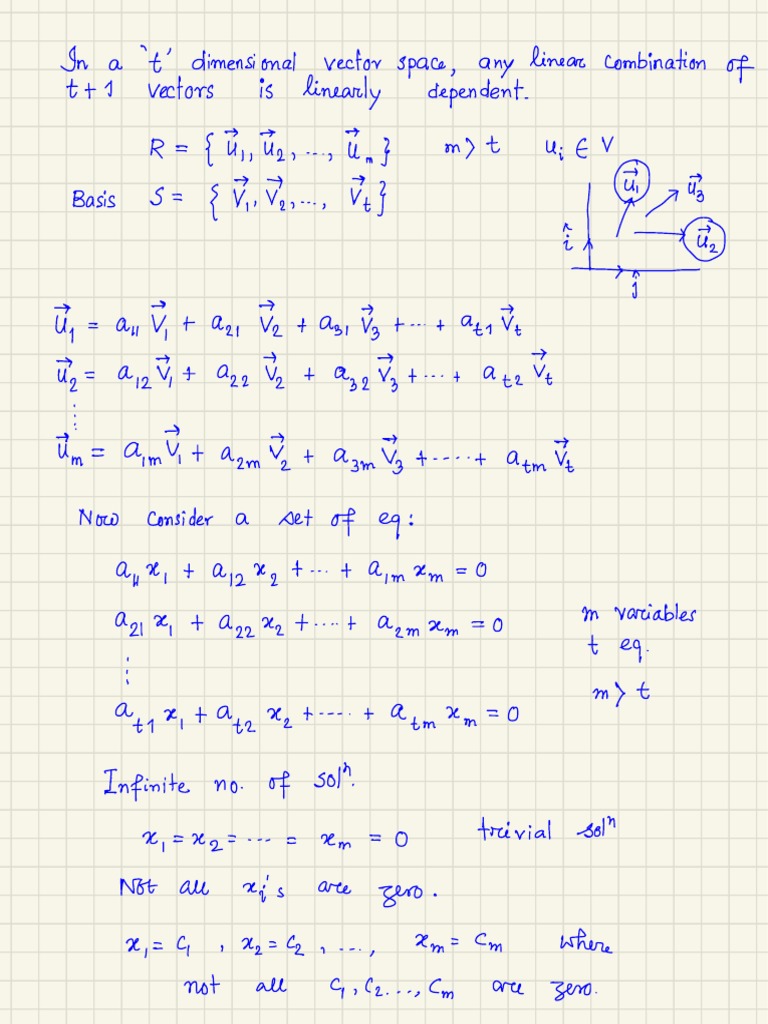 In a 't' dimensional vector space, any linear combination of
t+1 vectors is linearly dependent.
R = { u⃗₁, u⃗₂, ..., u⃗ₘ } m > t uᵢ ∈ V
Basis S = { V⃗₁, V⃗₂, ..., V⃗ₜ }
u⃗₁ u⃗₃
î u⃗₂
ĵ
u⃗₁ = a₁₁ V⃗₁ + a₂₁ V⃗₂ + a₃₁ V⃗₃ + ... + aₜ₁ V⃗ₜ
u⃗₂ = a₁₂ V⃗₁ + a₂₂ V⃗₂ + a₃₂ V⃗₃ + ... + aₜ₂ V⃗ₜ
⋮
u⃗ₘ = a₁ₘ V⃗₁ + a₂ₘ V⃗₂ + a₃ₘ V⃗₃ + ..... + aₜₘ V⃗ₜ
Now consider a set of eq:
a₁₁ x₁ + a₁₂ x₂ + ... + a₁ₘ xₘ = 0
a₂₁ x₁ + a₂₂ x₂ + .... + a₂ₘ xₘ = 0
⋮
aₜ₁ x₁ + aₜ₂ x₂ + ..... + aₜₘ xₘ = 0
m variables
t eq.
m > t
Infinite no. of solⁿ.
x₁ = x₂ = ... = xₘ = 0 trivial solⁿ
Not all xᵢ's are zero.
x₁ = c₁ , x₂ = c₂ , ..., xₘ = cₘ where
not all c₁, c₂ ..., cₘ are zero.